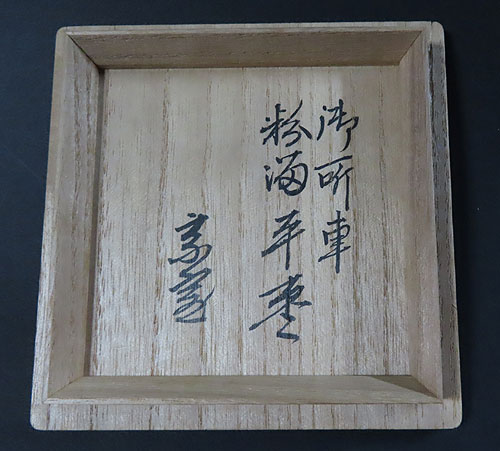 御所車
粉溜平棗